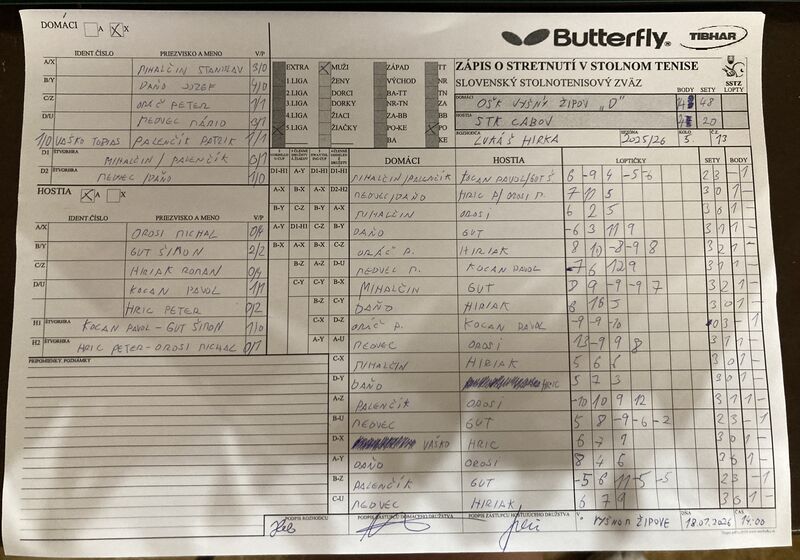 DOMÁCI A X
Butterfly TIBHAR
ZÁPIS O STRETNUTÍ V STOLNOM TENISE
SLOVENSKÝ STOLNOTENISOVÝ ZVÄZ
SSTZ
IDENT.ČÍSLO PRIEZVISKO A MENO V/P
A/X MIHALČIN STANISLAV 3/0
B/Y DAŇO JOZEF 4/0
C/Z ORÁČ PETER 1/1
D/U MEDVEC MÁRIO 3/1
1/0 VAŠKO TOBIAS PALENČÍK PATRIK 1/1
D1 ŠTVORHRA MIHALČIN / PALENČÍK 0/1
D2 MEDVEC / DAŇO 1/0
EXTRA MUŽI ZÁPAD TT
1.LIGA ŽENY VÝCHOD NR
2.LIGA DORCI BA-TT TN
3.LIGA DORKY NR-TN ZA
4.LIGA ŽIACI ZA-BB BB
5.LIGA ŽIAČKY PO-KE PO
BA KE
DOMÁCI OŠK VYŠNÝ ŽIPOV "D" BODY SETY LOPTY 48
HOSTIA STK CABOV 20
ROZHODCA LUKÁŠ HIRKA SEZÓNA 2025/26 KOLO 5 Č. 13
HOSTIA A X
IDENT.ČÍSLO PRIEZVISKO A MENO V/P
A/X OROSI MICHAL 0/4
B/Y GUT ŠIMON 2/2
C/Z HIRIAK ROMAN 0/4
D/U KOCAN PAVOL 1/1
HRIC PETER 0/2
H1 ŠTVORHRA KOCAN PAVOL - GUT ŠIMON 1/0
H2 HRIC PETER - OROSI MICHAL 0/1
PRIPOMIENKY, POZNÁMKY
DOMÁCI HOSTIA LOPTIČKY SETY BODY
D1-H1 MIHALČIN/PALENČÍK KOCAN PAVOL/GUT Š 6 -9 4 -5 -6 2 3 - 1
D2-H2 MEDVEC/DAŇO HRIC P/OROSI M. 7 11 5 3 0 1 -
A-X MIHALČIN OROSI 6 2 5 3 0 1 -
B-Y DAŇO GUT -6 3 11 9 3 1 1 -
C-Z ORÁČ P. HIRIAK 8 10 -8 -9 8 3 2 1 -
D-U MEDVEC M. KOCAN PAVOL -7 6 12 9 3 1 1 -
B-X MIHALČIN GUT 9 -9 -9 7 3 2 1 -
C-Y DAŇO HIRIAK 3 0 1 -
D-Z ORÁČ P. KOCAN PAVOL -9 -9 -10 0 3 - 1
A-U MEDVEC OROSI 13 -9 9 8 3 1 1 -
C-X MIHALČIN HIRIAK 5 6 6 3 0 1 -
D-Y DAŇO HRIC 5 7 3 3 0 1 -
A-Z PALENČÍK OROSI -10 10 9 12 3 1 1 -
B-U MEDVEC GUT 5 8 -9 -6 -2 2 3 - 1
D-X VAŠKO HRIC 6 7 7 3 0 1 -
A-Y DAŇO OROSI 8 4 6 3 0 1 -
B-Z PALENČÍK GUT -5 6 11 -5 -5 2 3 - 1
C-U MEDVEC HIRIAK 6 7 9 3 0 1 -
PODPIS ROZHODCU PODPIS ZÁSTUPCU DOMÁCEHO DRUŽSTVA PODPIS ZÁSTUPCU HOSŤUJÚCEHO DRUŽSTVA V VYŠNOM ŽIPOVE DŇA 18.01.2026 ČAS 14:00